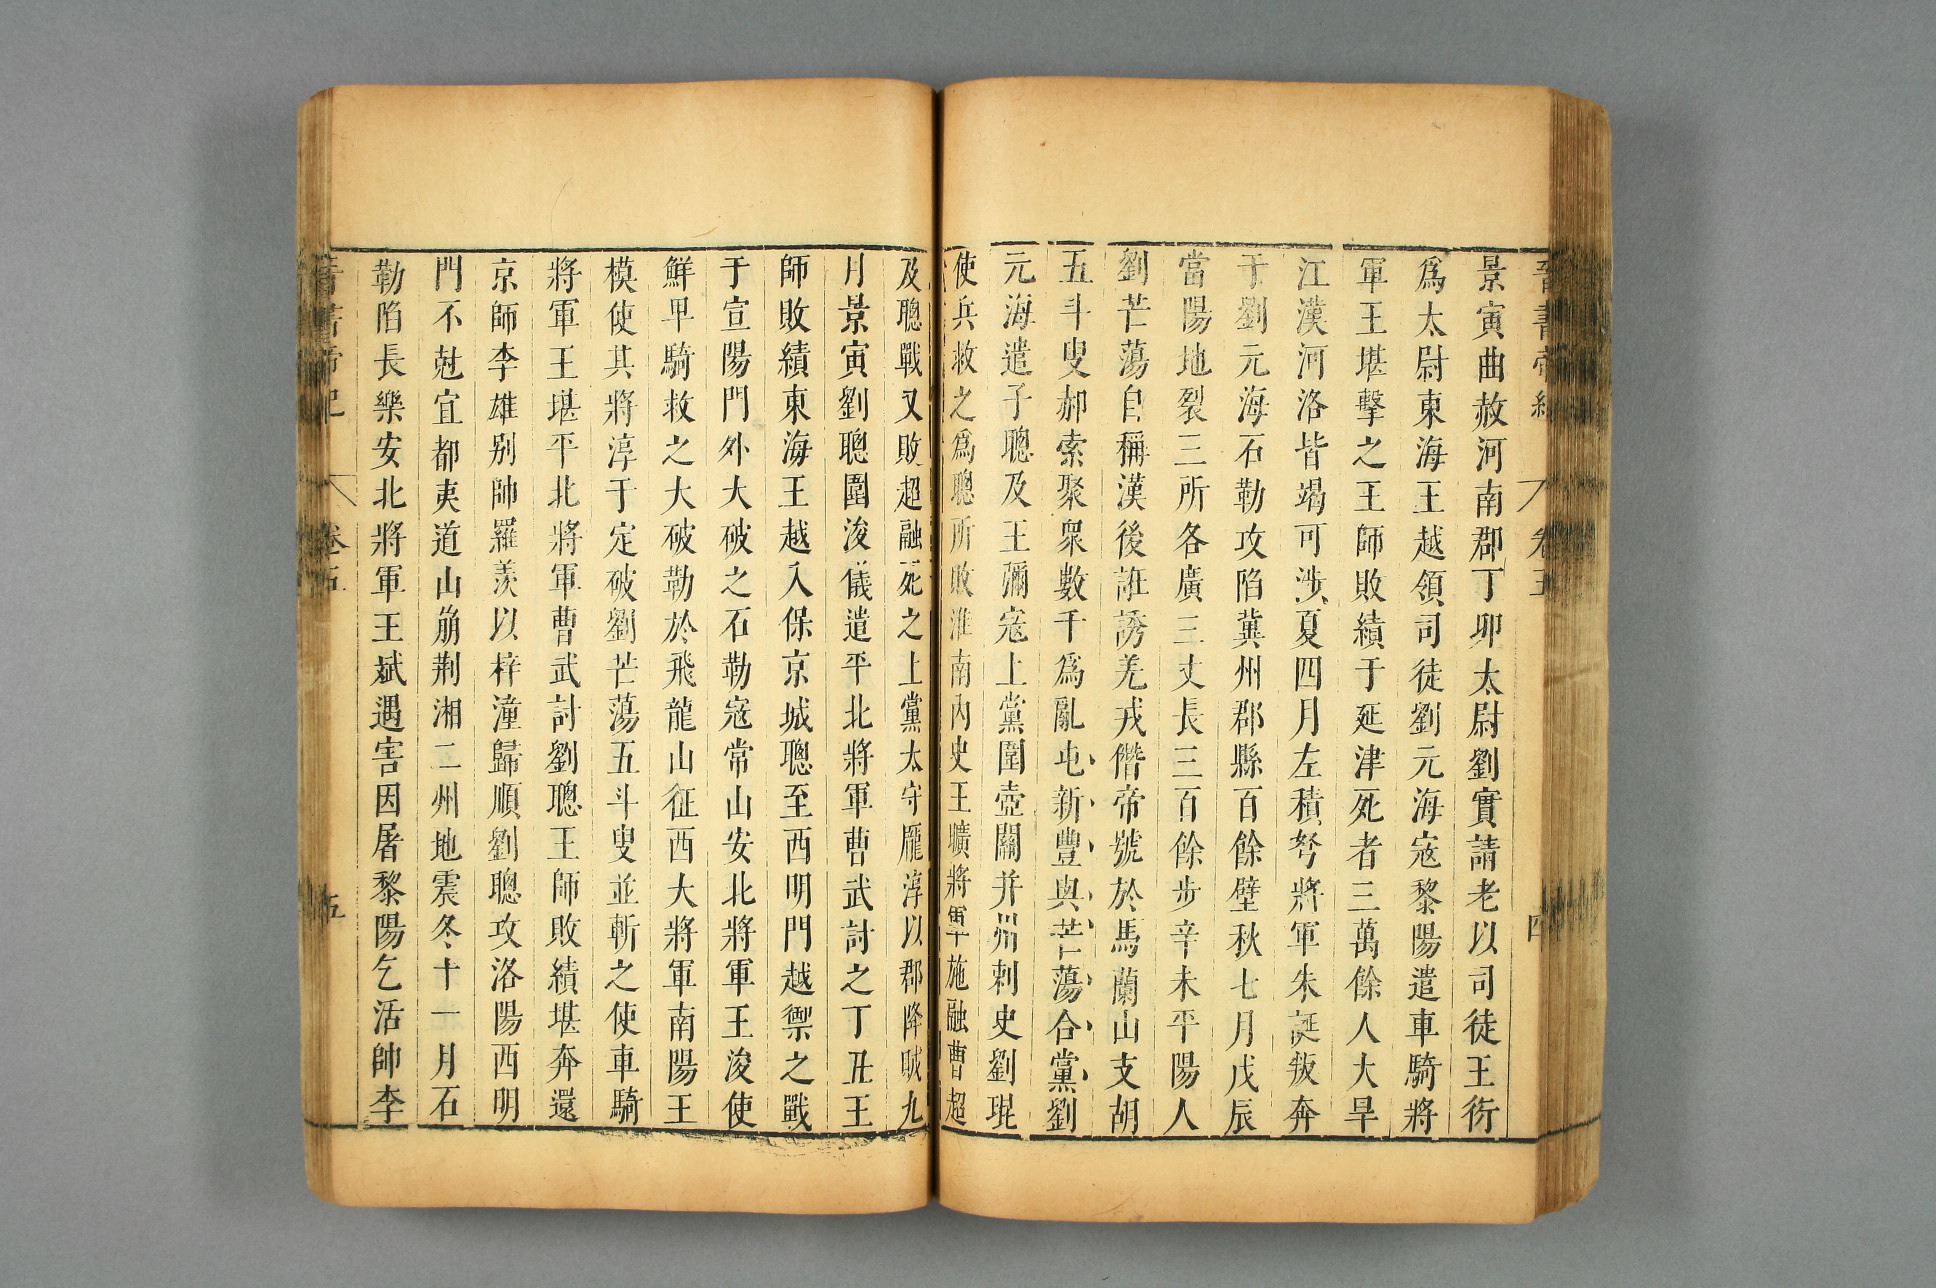 晉書帝紀 卷五 四
景寅曲赦河南郡丁卯太尉劉寔請老以司徒王衍
爲太尉東海王越領司徒劉元海寇黎陽遣車騎將
軍王堪擊之王師敗績于延津死者三萬餘人大旱
江漢河洛皆竭可涉夏四月左積弩將軍朱誕叛奔
于劉元海石勒攻陷冀州郡縣百餘壁秋七月戊辰
當陽地裂三所各廣三丈長三百餘步辛未平陽人
劉芒蕩自稱漢後誑誘羌戎僭帝號於馬蘭山支胡
五斗叟郝索聚衆數千爲亂屯新豐與芒蕩合黨劉
元海遣子聰及王彌寇上黨圍壺關并州刺史劉琨
使兵救之爲聰所敗淮南內史王曠將軍施融曹超
及聰戰又敗超融死之上黨太守龐淳以郡降賊九
月景寅劉聰圍浚儀遣平北將軍曹武討之丁丑王
師敗績東海王越入保京城聰至西明門越禦之戰
于宣陽門外大破之石勒寇常山安北將軍王浚使
鮮卑騎救之大破勒於飛龍山征西大將軍南陽王
模使其將淳于定破劉芒蕩五斗叟並斬之使車騎
將軍王堪平北將軍曹武討劉聰王師敗績堪奔還
京師李雄別帥羅羨以梓潼歸順劉聰攻洛陽西明
門不尅宜都夷道山崩荆湘二州地震冬十一月石
勒陷長樂安北將軍王斌遇害因屠黎陽乞活帥李
晉書帝紀 卷五 五